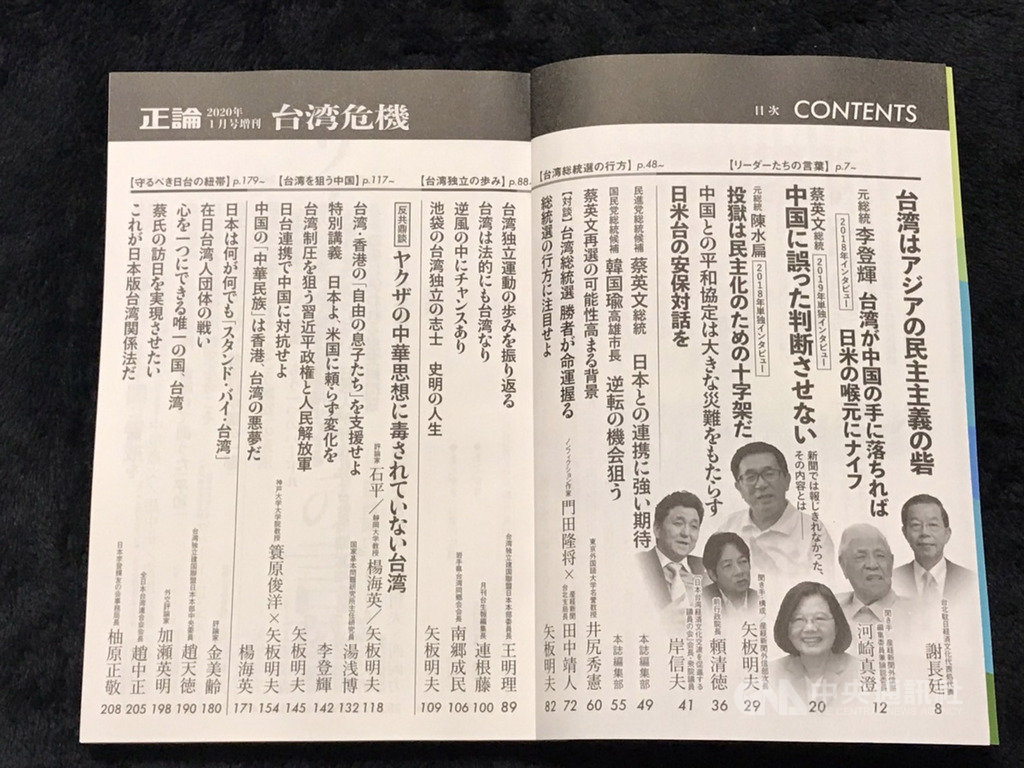 目次 CONTENTS
【リーダーたちの言葉】p.7~
台湾はアジアの民主主義の砦
台北駐日経済文化代表処代表
謝長廷
8
元総統 李登輝
2018年インタビュー
台湾が中国の手に落ちれば
日米の喉元にナイフ
聞き手 産経新聞外信部編集委員兼論説委員
河崎真澄
12
蔡英文総統
2019年単独インタビュー
中国に誤った判断させない
新聞では報じきれなかった、
その内容とは――
20
元総統 陳水扁
2018年単独インタビュー
投獄は民主化のための十字架だ
聞き手・構成 産経新聞外信部次長
矢板明夫
29
中国との平和協定は大きな災難をもたらす
前行政院長
頼清徳
36
日米台の安保対話を
日本台湾経済文化交流を促進する
議員の会会長・衆院議員
岸信夫
41
【台湾総統選の行方】p.48~
民進党総統候補 蔡英文総統 日本との連携に強い期待
本誌編集部
49
国民党総統候補 韓国瑜高雄市長 逆転の機会狙う
本誌編集部
55
蔡英文再選の可能性高まる背景
東京外国語大学名誉教授
井尻秀憲
60
【対談】台湾総統選 勝者が命運握る
ノンフィクション作家 門田隆将×産経新聞台北支局長 田中靖人
72
総統選の行方に注目せよ
矢板明夫
82
正論 2020年1月号増刊 台湾危機
【台湾独立の歩み】p.88~
台湾独立運動の歩みを振り返る
台湾独立建国聯盟日本本部委員長
王明理
89
台湾は法的にも台湾なり
月刊台生報編集長
連根藤
100
逆風の中にチャンスあり
岩手県台湾同郷会会長
南郷成民
106
池袋の台湾独立の志士 史明の人生
矢板明夫
109
【台湾を狙う中国】p.117~
反共鼎談
ヤクザの中華思想に毒されていない台湾
評論家 石平/静岡大学教授 楊海英/矢板明夫
118
台湾・香港の「自由の息子たち」を支援せよ
国家基本問題研究所主任研究員
湯浅博
132
特別講義 日本よ、米国に頼らず変化を
李登輝
142
台湾制圧を狙う習近平政権と人民解放軍
矢板明夫
145
日台連携で中国に対抗せよ
神戸大学大学院教授 簑原俊洋×矢板明夫
154
中国の「中華民族」は香港、台湾の悪夢だ
楊海英
171
【守るべき日台の紐帯】p.179~
日本は何が何でも「スタンド・バイ・台湾」
評論家
金美齢
180
在日台湾人団体の戦い
台湾独立建国聯盟日本本部中央委員
趙天徳
190
心を一つにできる唯一の国、台湾
外交評論家
加瀬英明
198
蔡氏の訪日を実現させたい
全日本台湾連合会会長
趙中正
205
これが日本版台湾関係法だ
日本李登輝友の会事務局長
柚原正敬
208
中央通訊社